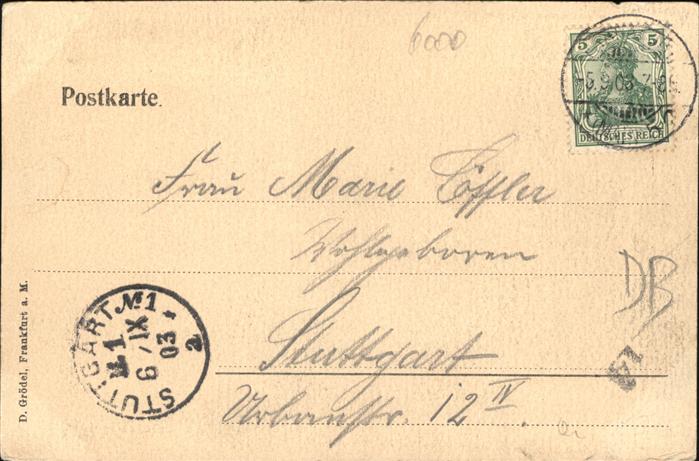 6000
5 5
5.9.03.7-8
DEUTSCHES REICH
Postkarte.
Frau Marie Löffler
Wohlgeboren
DB
Stuttgart
Urbanstr. 12 IV.
STUTTGART. No 1
6 / IX
03
a
D. Grödel, Frankfurt a. M.